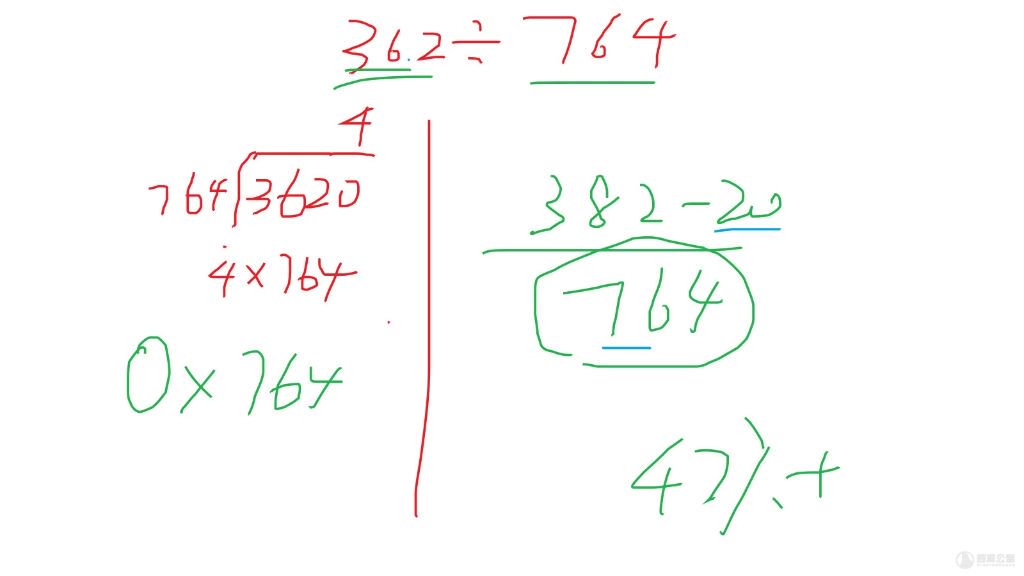 36.2÷764
4
764⟌3620
4×764
0×764
382-20
764
47%+